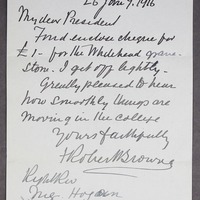 26 Jan 7. 1916
My dear President
Find enclose cheque for
£1- for the Whitehead grave
stone. I get off lightly.
Greatly pleased to hear
how smoothly things are
moving in the college
Yours faithfully
+Robert Browne
Right Rev
Mgr Hogan